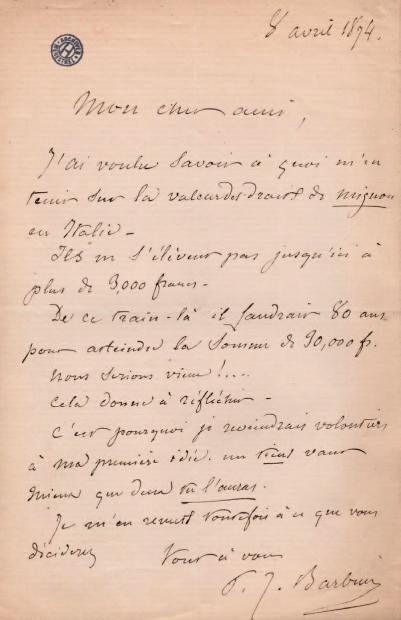 8 avril 1874.
Mon cher ami,
J'ai voulu savoir à quoi m'en
tenir sur la valeur des droits de Mignon
en Italie -
Ils ne s'élèvent pas jusqu'ici à
plus de 3,000 francs -
De ce train-là il faudrait 80 ans
pour atteindre la somme de 30,000 fs.
Nous serions vieux !....
Cela donne à réfléchir -
C'est pourquoi je reviendrais volontiers
à ma première idée. un tiens vaut
mieux que deux tu l'auras.
Je m'en remets toutefois à ce que vous
déciderez
Tout à vous
P. J. Barbier